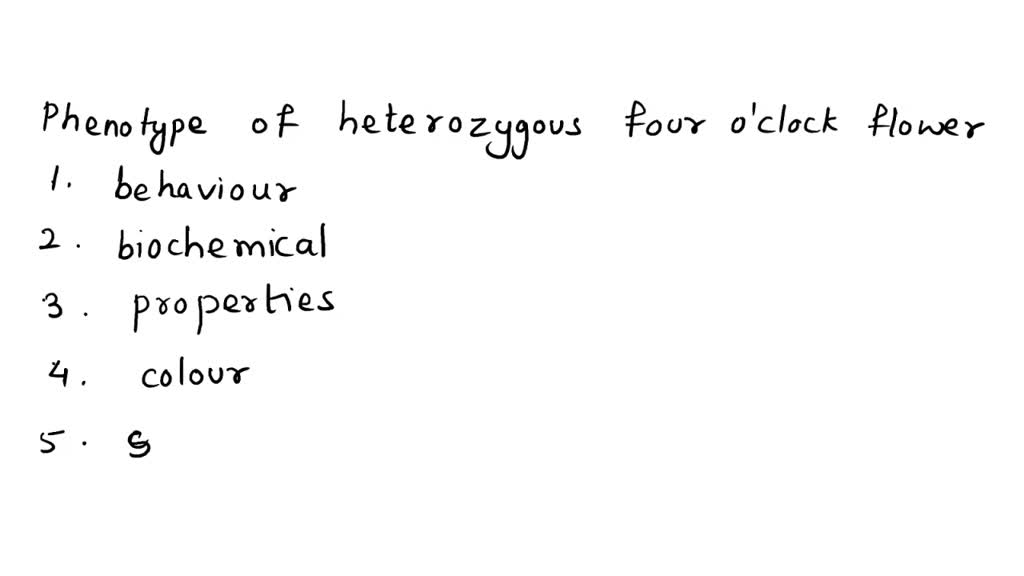 Phenotype of heterozygous four o'clock flower
1. behaviour
2. biochemical
3. properties
4. colour
5. s